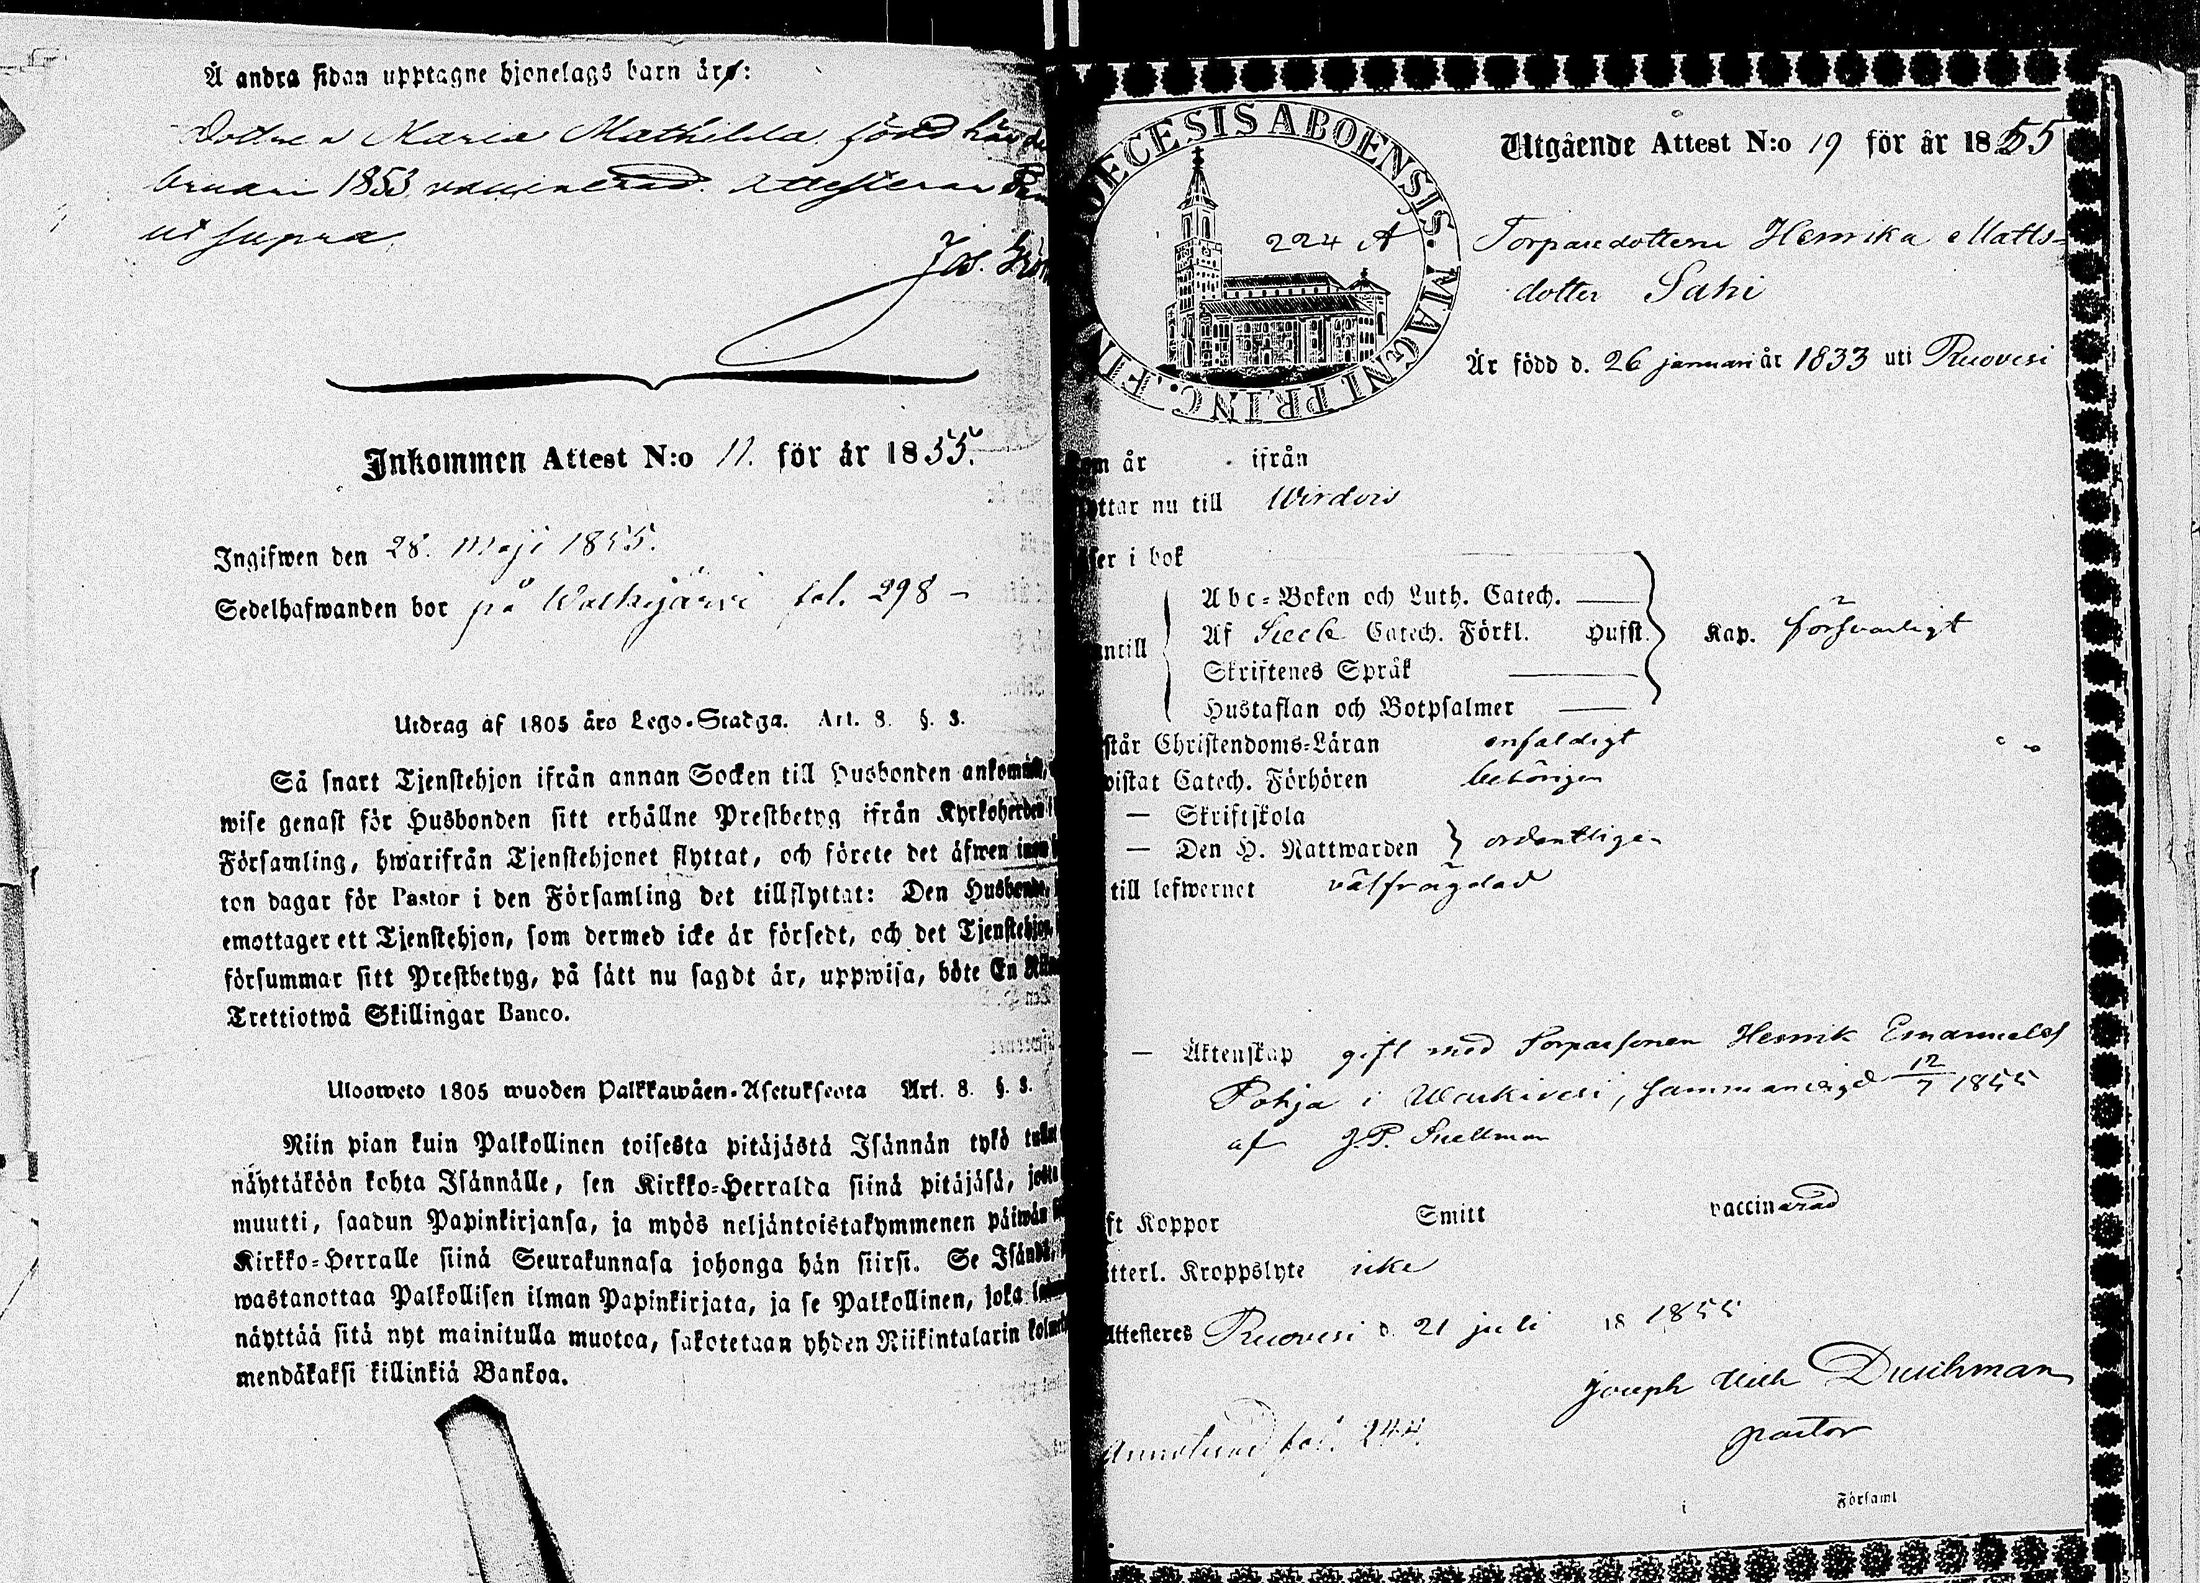 Å andra sidan upptagne hjonelags barn är:
Dottren Maria Mathilda född
bruari 1853 vaccinerad. Attesterar
ut supra
Jos.
Inkommen Attest N:o 11. för år 1855.
Ingifwen den 28. Maji 1855.
Sedelhafwanden bor på Walkejärvi fol. 298 –
Utdrag af 1805 års Lego-Stadga. Art. 8. §. 3.
Så snart Tjenstehjon ifrån annan Socken till Husbonden ankommit,
wise genast för Husbonden sitt erhållne Prestbetyg ifrån Kyrkoherden i
Församling, hwarifrån Tjenstehjonet flyttat, och förete det äfwen inom
ton dagar för Pastor i den Församling det tillflyttat: Den Husbonde,
emottager ett Tjenstehjon, som dermed icke är försedt, och det Tjenstehjon,
försummar sitt Prestbetyg, på sätt nu sagdt är, uppwisa, böte En
Trettiotwå Skillingar Banco.
Ulosweto 1805 wuoden Palkkawäen-Asetuksesta Art. 8. §. 3.
Niin pian kuin Palkollinen toisesta pitäjästä Isännän tykö tullut
näyttäköön kohta Isännälle, sen Kirkko-Herralda siinä pitäjäsä, josta
muutti, saadun Papinkirjansa, ja myös neljäntoistakymmenen päiwän
Kirkko-Herralle siinä Seurakunnasa johonga hän siirsi. Se Isändä,
wastanottaa Palkollisen ilman Papinkirjata, ja se Palkollinen, joka
näyttää sitä nyt mainitulla muotoa, sakotetaan yhden Riikintalarin kolmek
mendäkaksi killinkiä Bankoa.
DECESIS ABOENSIS. MAGNI PRINC. FIN
224 A
Utgående Attest N:o 19 för år 1855
Torparedottern Henrika Matts-
dotter Sahi
Är född d. 26 januari år 1833 uti Ruovesi
om år ifrån
ttar nu till Wirdois
ser i bok
ntill
Abc-Boken och Luth. Catech.
Af Catech. Förkl. Hufst.
Skriftenes Språk
Hustaflan och Botpsalmer
Kap. försvarligt
står Christendoms-Läran enfaldigt
wistat Catech. Förhören behörigen
— Skriftskola
— Den H. Nattwarden ordentligen
till lefwernet välfrägdad
— Äktenskap gift med Torparsonen Henrik Emanuels
Pohja i sammanvigd 12/7 1855
af J.P. Snellman
ft Koppor Smitt vaccinerad
tterl. Kroppslyte icke
Attesteres Ruovesi d. 21 juli 18 1855
Joseph Wilh Durchman
pastor
fol. 244
i Församl